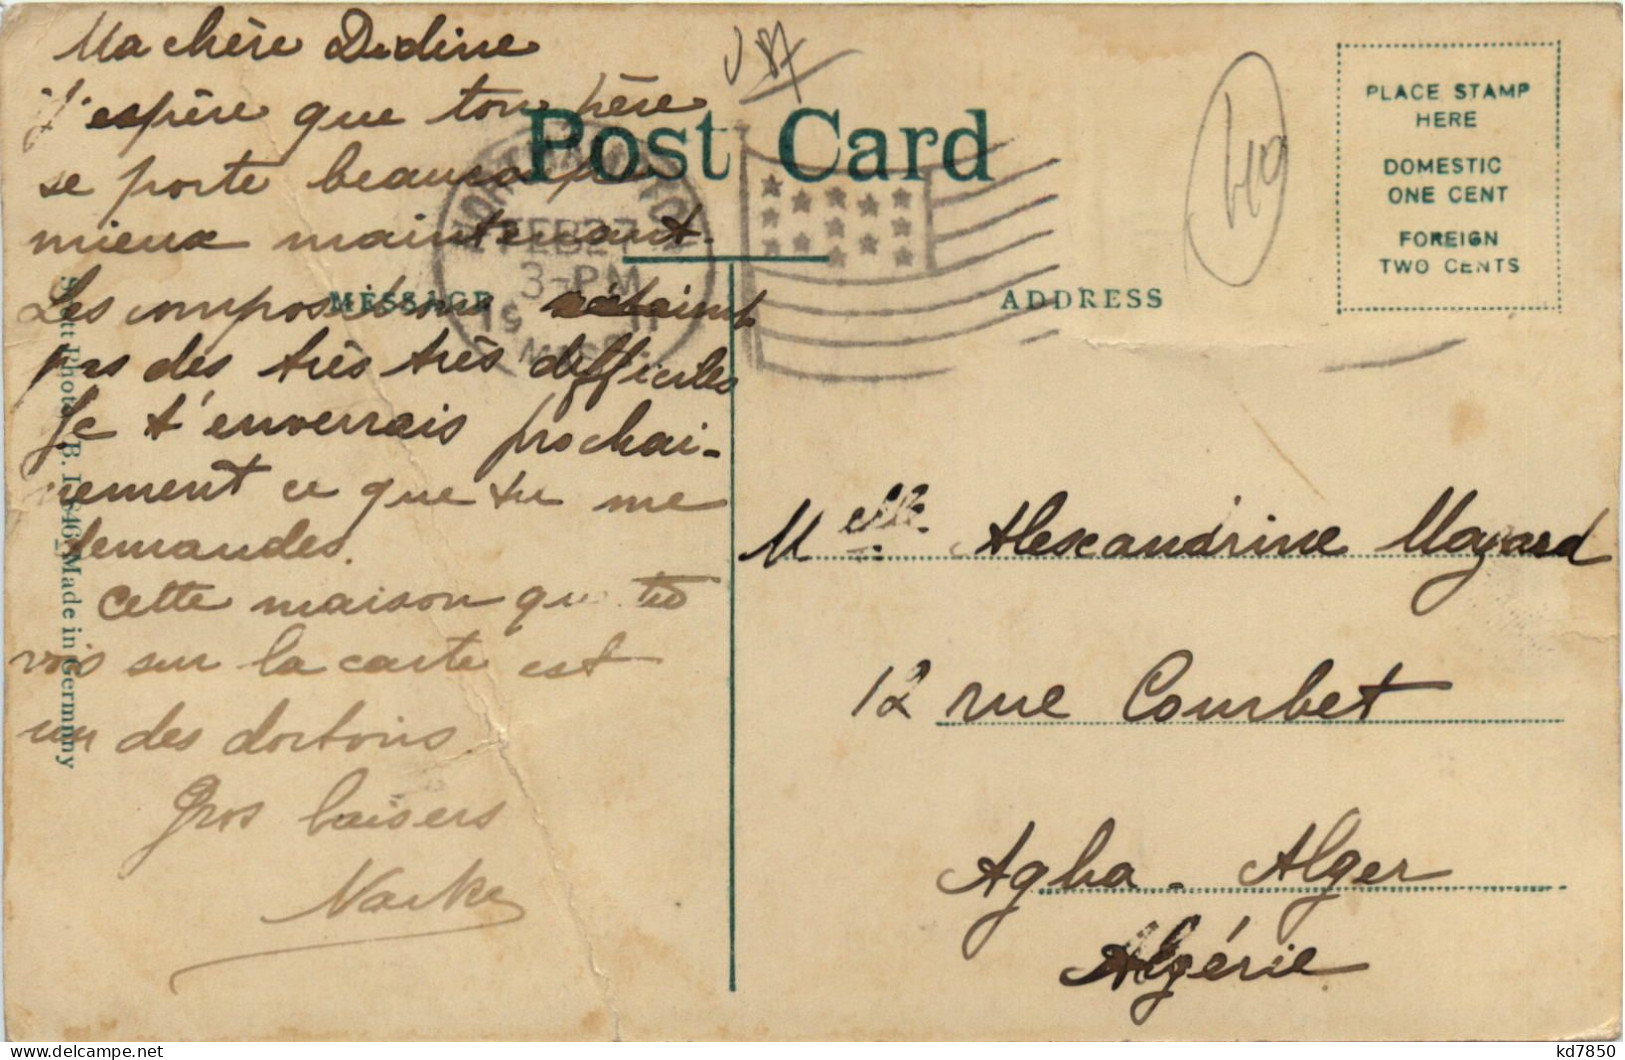 Ma chère Didine
J'espère que ton père
se porte beaucoup
mieux maintenant.
Les compositions étaient
pas des très très difficiles
Je t'enverrais prochai-
nement ce que tu me
demandes.
Cette maison que tu
vois sur la carte est
un des dortoirs.
Gros baisers
USA
Post Card
NORTHAMPTON
FEB 27
3-PM
19 11
MASS.
MESSAGE
ADDRESS
PLACE STAMP
HERE
DOMESTIC
ONE CENT
FOREIGN
TWO CENTS
Melle. Alexandrine Mayard
12 rue Courbet
Agha. Alger
Algérie
Made in Germany
kd7850